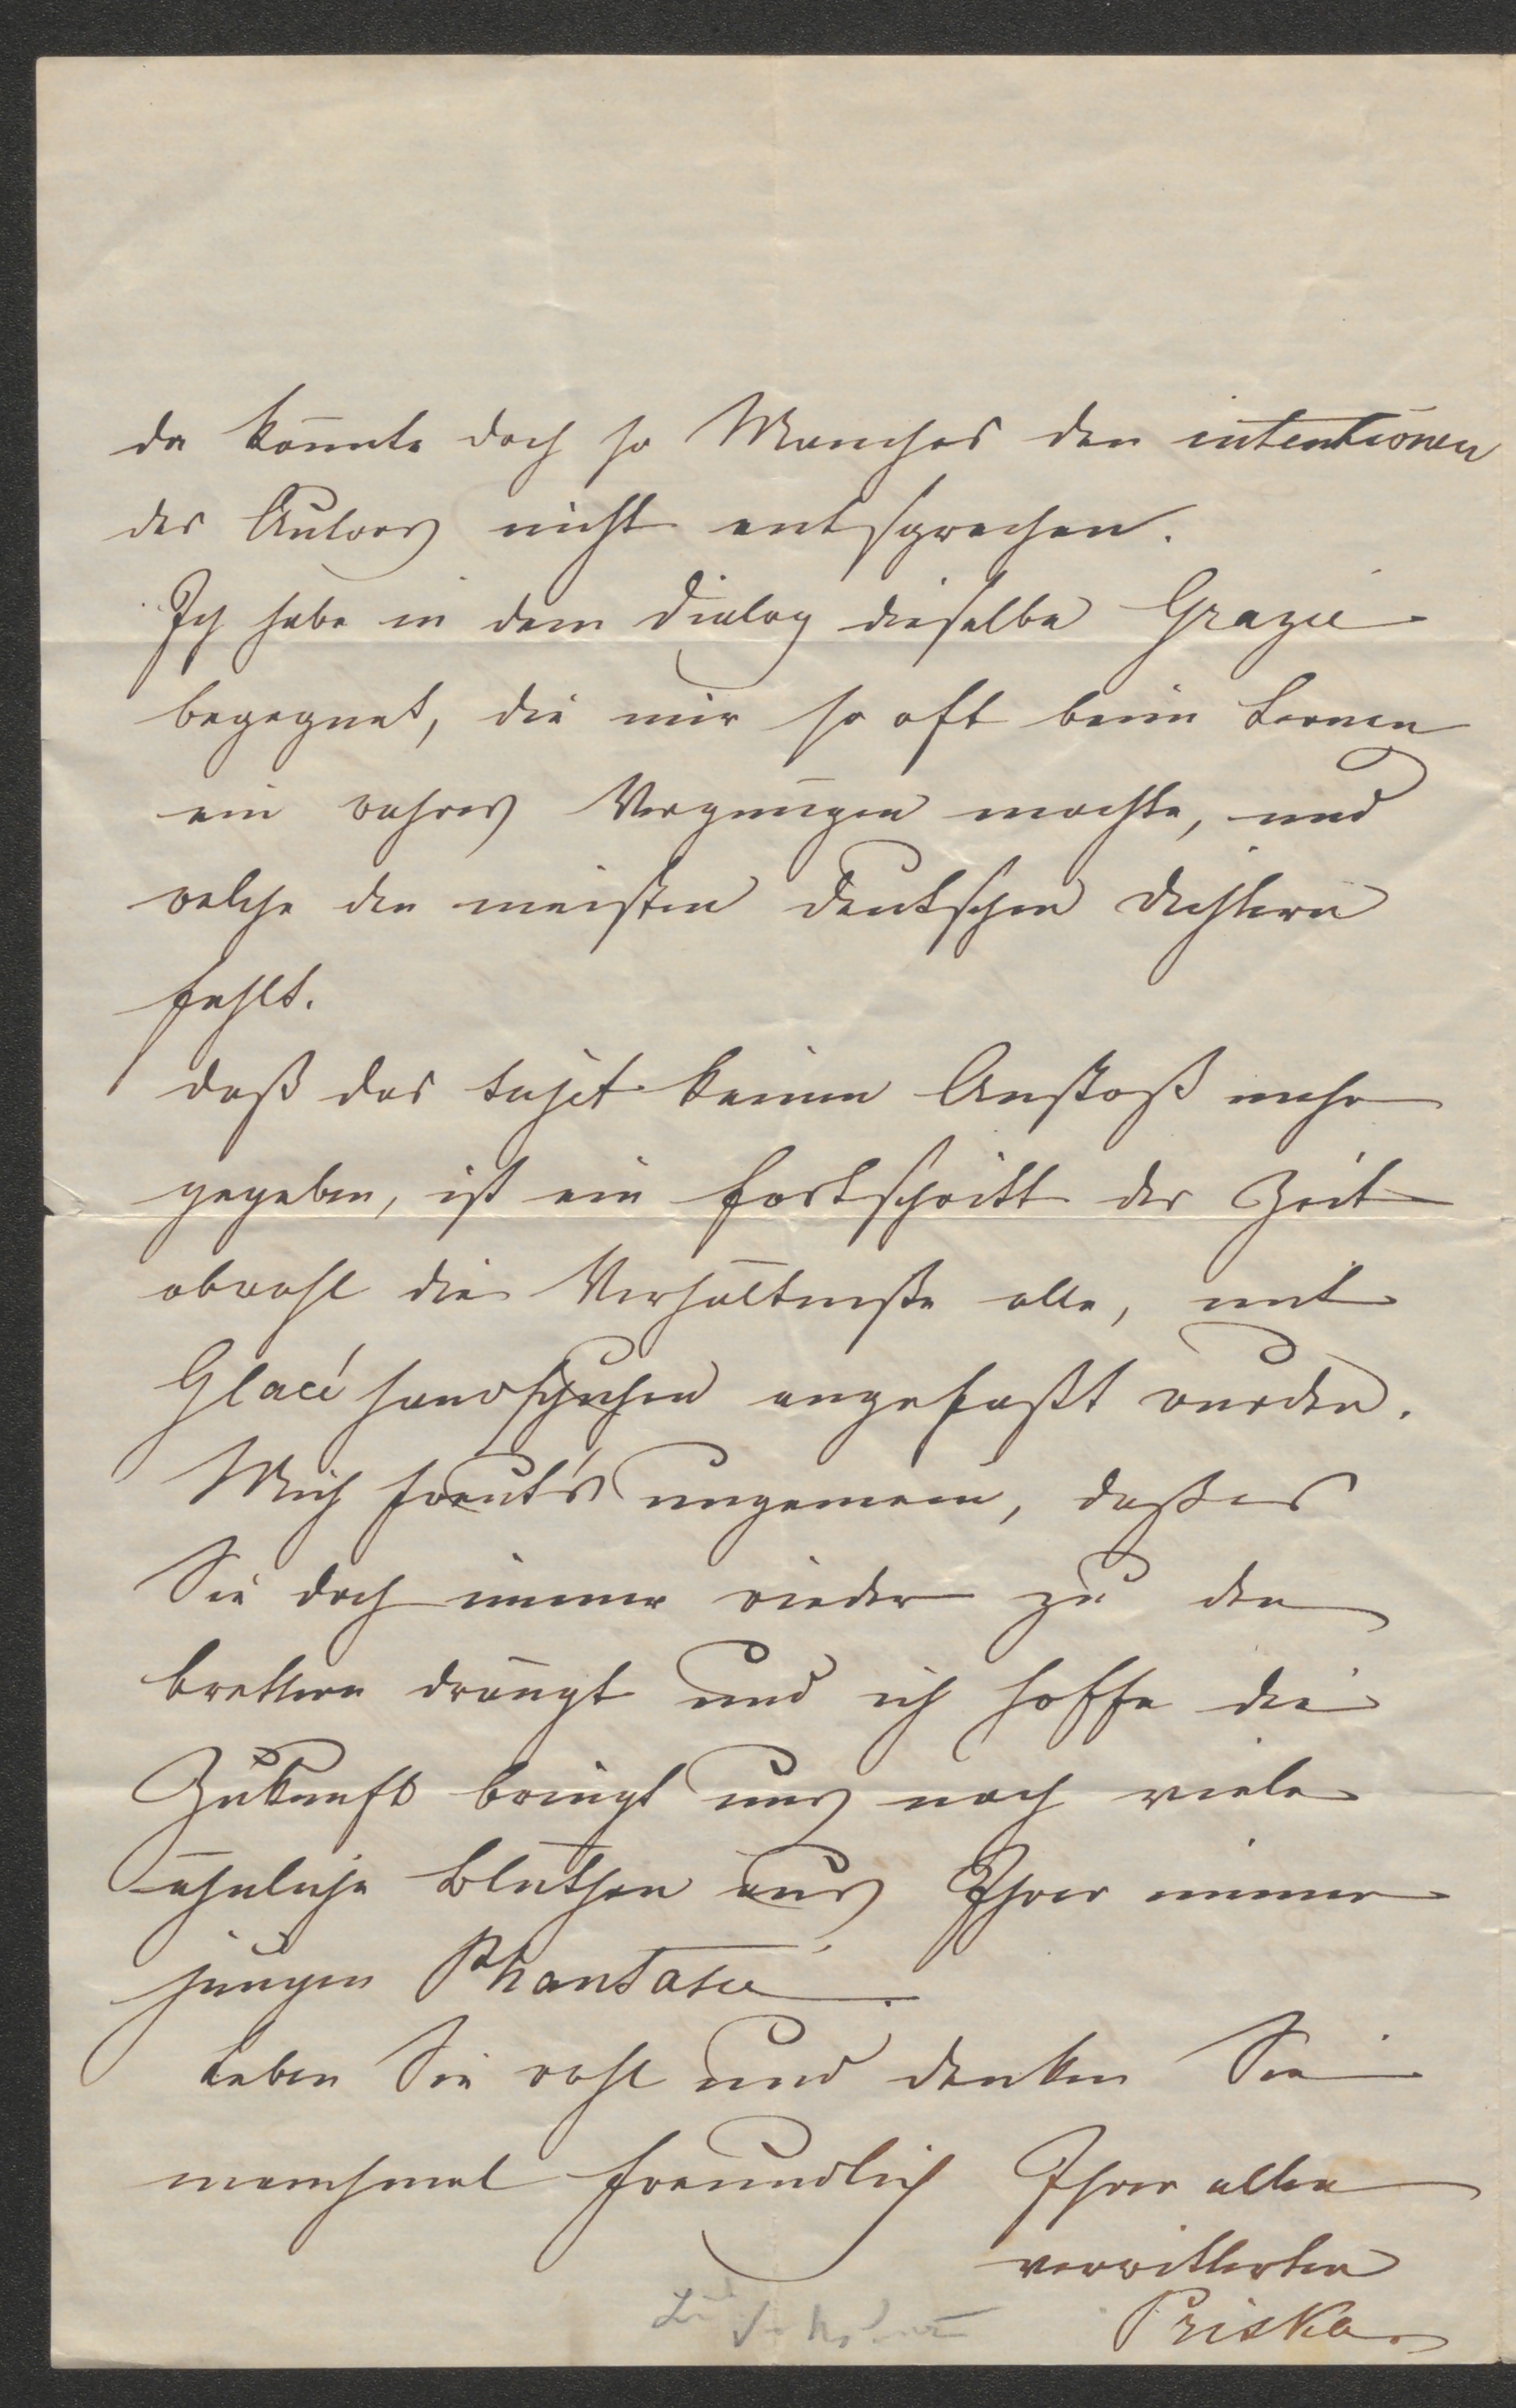 da könnte doch so Manches den intentionen
des Autors nicht entsprechen.
Ich habe in dem Dialog dieselbe Grazie
begegnet, die mir so oft beim Lernen
ein wahres Vergnügen machte, und
welche den meisten deutschen Dichtern
fehlt.
Daß das Sujet keinen Anstoß mehr
gegeben, ist ein Fortschritt der Zeit
obwohl die Verhältniße alle, mit
Glacéhandschuhen angefaßt wurden.
Mich freut's ungemein, daß es
Sie doch immer wieder zu den
Brettern drängt und ich hoffe die
Zukunft bringt uns noch viele
ähnliche Blüthen aus Ihrer immer
jungen Phantasie.
Leben Sie wohl und denken Sie
manchmal freundlich Ihrer alten
verwitterten
Priska